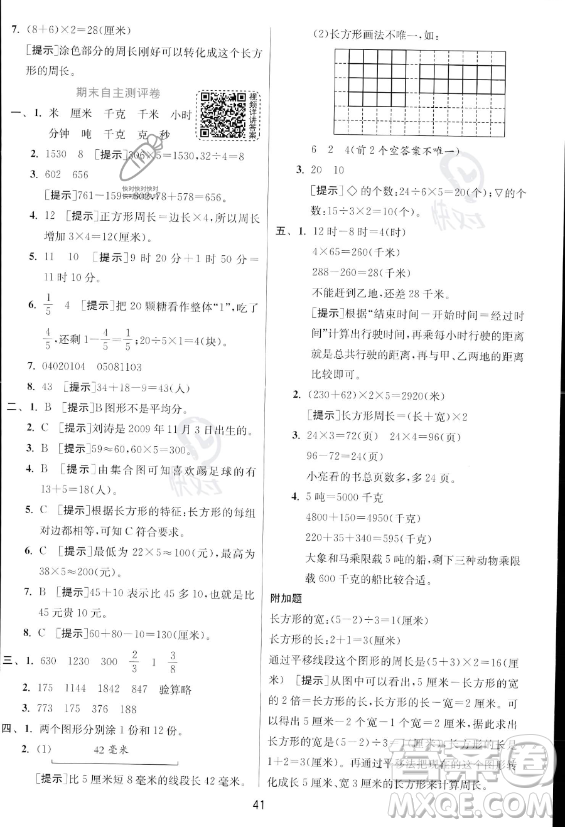 7. (8+6)×2=28(厘米)
[提示]涂色部分的周长刚好可以转化成这个长方
形的周长。
期末自主测评卷
一、1. 米 厘米 千克 千米 小时
分钟 吨 千克 克 秒
视频详讲答案
2. 1530 8 [提示]306×5=1530,32÷4=8
3. 602 656
[提示]761-159=602,78+578=656。
快对快对快对
4. 12 [提示]正方形周长=边长×4,所以周长
增加3×4=12(厘米)。
5. 11 10 [提示]9时20分+1时50分=
11时10分。
6. 1/5 4 [提示]把20颗糖看作整体“1”,吃了
4/5,还剩1-4/5=1/5;20÷5×1=4(块)。
7. 04020104 05081103
8. 43 [提示]34+18-9=43(人)
二、1. B [提示]B图形不是平均分。
2. C [提示]刘涛是2009年11月3日出生的。
3. B [提示]59≈60,60×5=300。
4. B [提示]由集合图可知喜欢踢足球的有
13+5=18(人)。
5. C [提示]长方形的特征:长方形的每组
对边都相等,可知C符合要求。
6. C [提示]最低为22×5≈100(元),最高为
38×5≈200(元)。
7. B [提示]45+10表示比45多10,也就是
数线上的B。
8. C [提示]60+80=130(厘米)。
三、1. 630 1230 300 2/3 1 3/8
2. 175 1144 1848 验算略
3. 773 188 175 186
四、1. 两个图形分别涂1份和12份。
2. (1) 42毫米
[提示]比5厘米短8毫米的线段长42毫米。
(2)长方形画法不唯一,如:
6 2 4(前2个空答案不唯一)
3. 20 10
[提示]◇的个数:24÷6×5=20(个);▽的个
数:15÷3×2=10(个)。
五、1. 12时-8时=4(时)
4×65=260(千米)
288-260=28(千米)
不能赶到乙地,还差28千米。
[提示]根据“结束时间-开始时间=经过时
间”计算出行驶时间,再乘每小时行驶的距离
就是共行驶的距离,再与甲、乙两地的距离比
较即可。
2. (230+62)×2×5=2920(米)
[提示]长方形周长=(长+宽)×2
3. 24×3=72(页) 24×4=96(页)
96-72=24(页)
小亮看的书总页数多,多24页。
4. 5吨=5000千克
4800+150=4950(千克)
220+35+34+150
大象和马乘限载5吨的船,剩下三种动物乘
限载600千克的船比较合适。
附加题
长方形的宽:(5-2)÷3=1(厘米)
长方形的长:2+1=3(厘米)
通过平移线段这个图形的周长是(5+3)×2=16(厘
米) [提示]从图中可以看出,5厘米-长方形的宽
的2倍=长方形的长,长方形的长-宽=2厘米。可
以得出5厘米-2厘米=长方形的宽×3,由此求出长
方形的长和宽。再通过平移法把现在的这个图形转
化成长5厘米、宽3厘米的长方形来计算周长。
41
答案圈
MXQE.COM